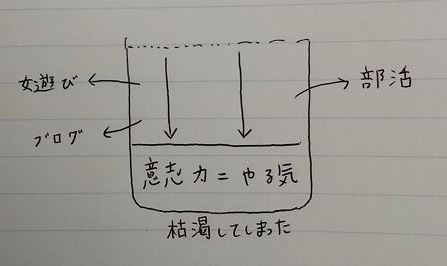 女遊び
部活
ブログ
意志力=やる気
枯渇してしまった